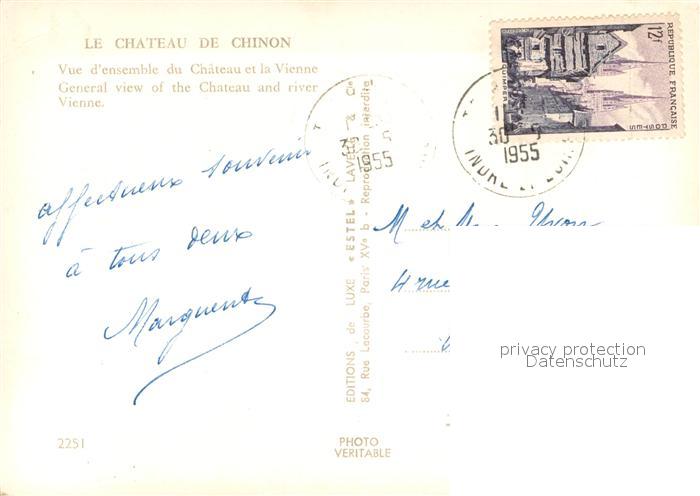 LE CHATEAU DE CHINON
Vue d'ensemble du Château et la Vienne
General view of the Chateau and river
Vienne.
affectueux souvenir
à tous deux
Marguerite
2251
EDITIONS de LUXE "ESTEL" LAVELLE & Cie
84, Rue Lacourbe, Paris XVe b - Reproduction interdite
PHOTO
VERITABLE
30-5
1955
INDRE
12f
REPUBLIQUE FRANÇAISE
POSTES
QUIMPER
30-5
1955
INDRE ET LOIRE
M et M
4 rue
privacy protection
Datenschutz